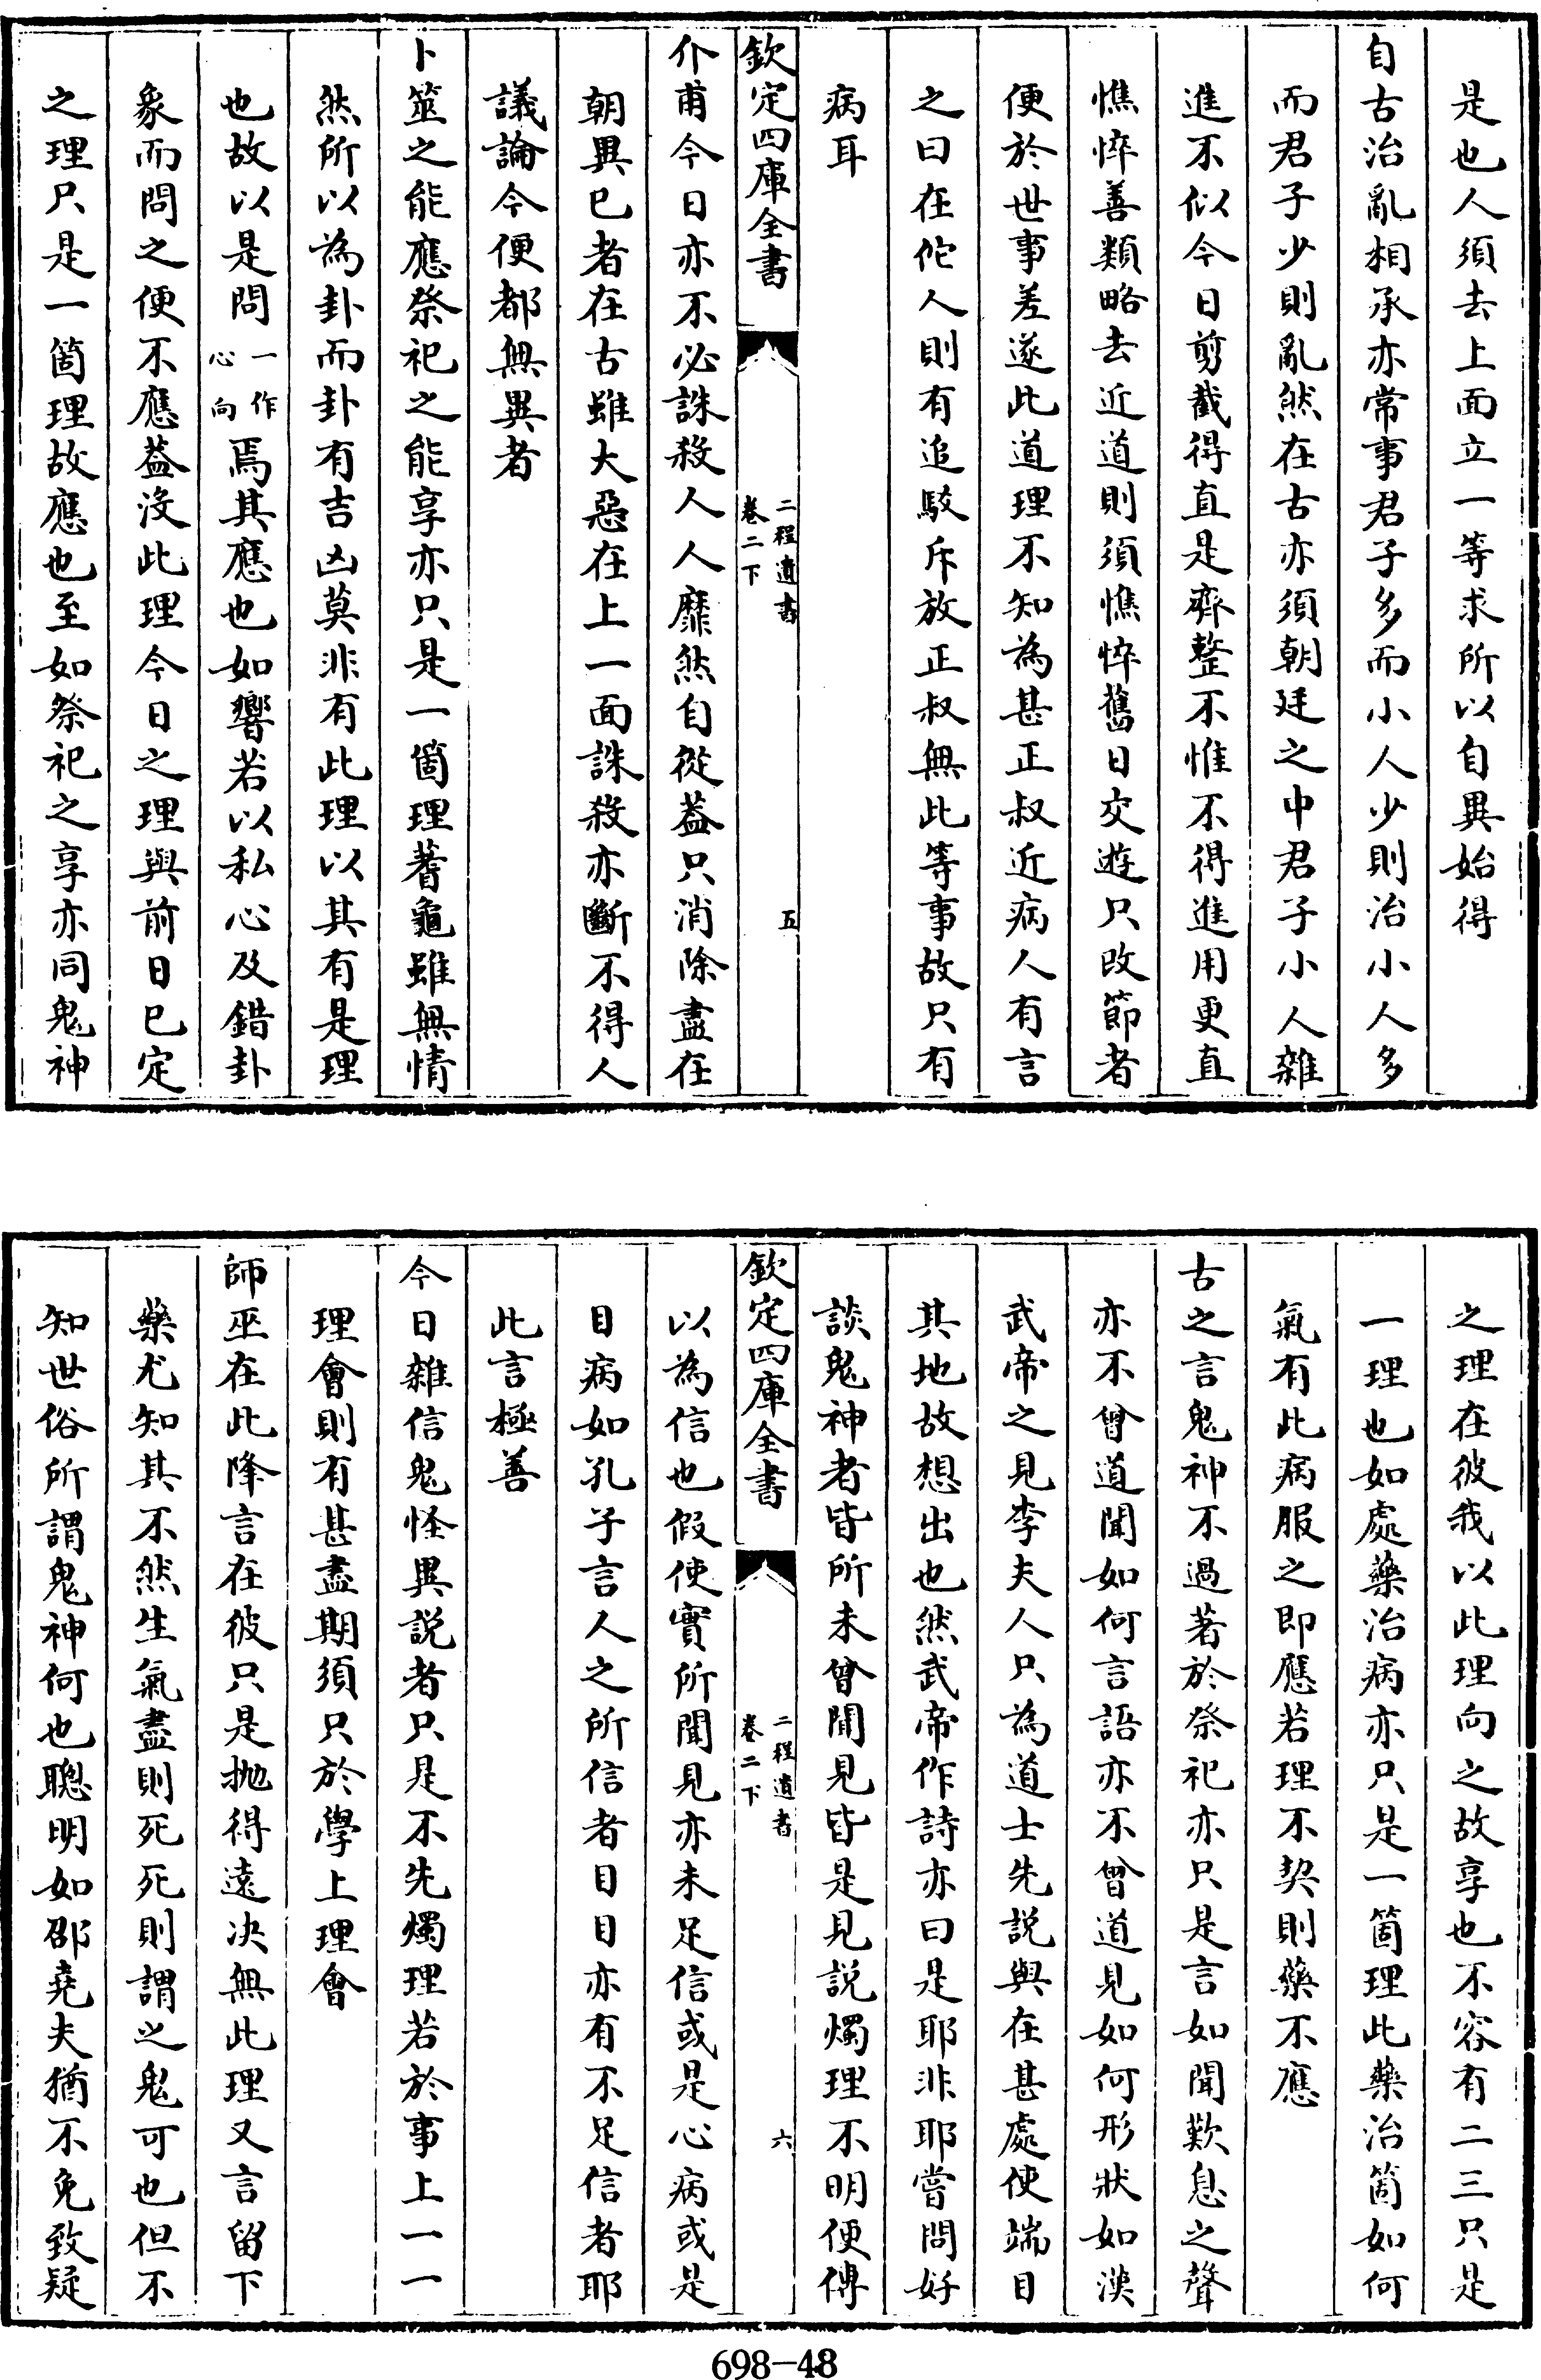 是也人須去上面立一等求所以自異始得
自古治亂相承亦常事君子多而小人少則治小人多
而君子少則亂然在古亦須朝廷之中君子小人雜
進不似今日剪截得直是齊整不惟不得進用更直
憔悴善類略去近道則須憔悴舊日交遊只改節者
便於世事差遂此道理不知為甚正叔近病人有言
之曰在佗人則有追駮斥放正叔無此等事故只有
病耳
欽定四庫全書
二程遺書
卷二下
五
介甫今日亦不必誅殺人人靡然自從葢只消除盡在
朝異已者在古雖大惡在上一面誅殺亦斷不得人
議論今便都無異者
卜筮之能應祭祀之能享亦只是一箇理蓍龜雖無情
然所以為卦而卦有吉凶莫非有此理以其有是理
也故以是問一作心向焉其應也如響若以私心及錯卦
象而問之便不應葢沒此理今日之理與前日已定
之理只是一箇理故應也至如祭祀之享亦同鬼神
之理在彼我以此理向之故享也不容有二三只是
一理也如處藥治病亦只是一箇理此藥治箇如何
氣有此病服之即應若理不契則藥不應
古之言鬼神不過著於祭祀亦只是言如聞歎息之聲
亦不曾道聞如何言語亦不曾道見如何形狀如漢
武帝之見李夫人只為道士先說與在甚處使端目
其地故想出也然武帝作詩亦曰是耶非耶嘗問好
談鬼神者皆所未曾聞見皆是見說燭理不明便傳
欽定四庫全書
二程遺書
卷二下
六
以為信也假使實所聞見亦未足信或是心病或是
目病如孔子言人之所信者目目亦有不足信者耶
此言極善
今日雜信鬼怪異說者只是不先燭理若於事上一一
理會則有甚盡期須只於學上理會
師巫在此降言在彼只是拋得遠決無此理又言留下
藥尤知其不然生氣盡則死死則謂之鬼可也但不
知世俗所謂鬼神何也聰明如邵堯夫猶不免致疑
698-48